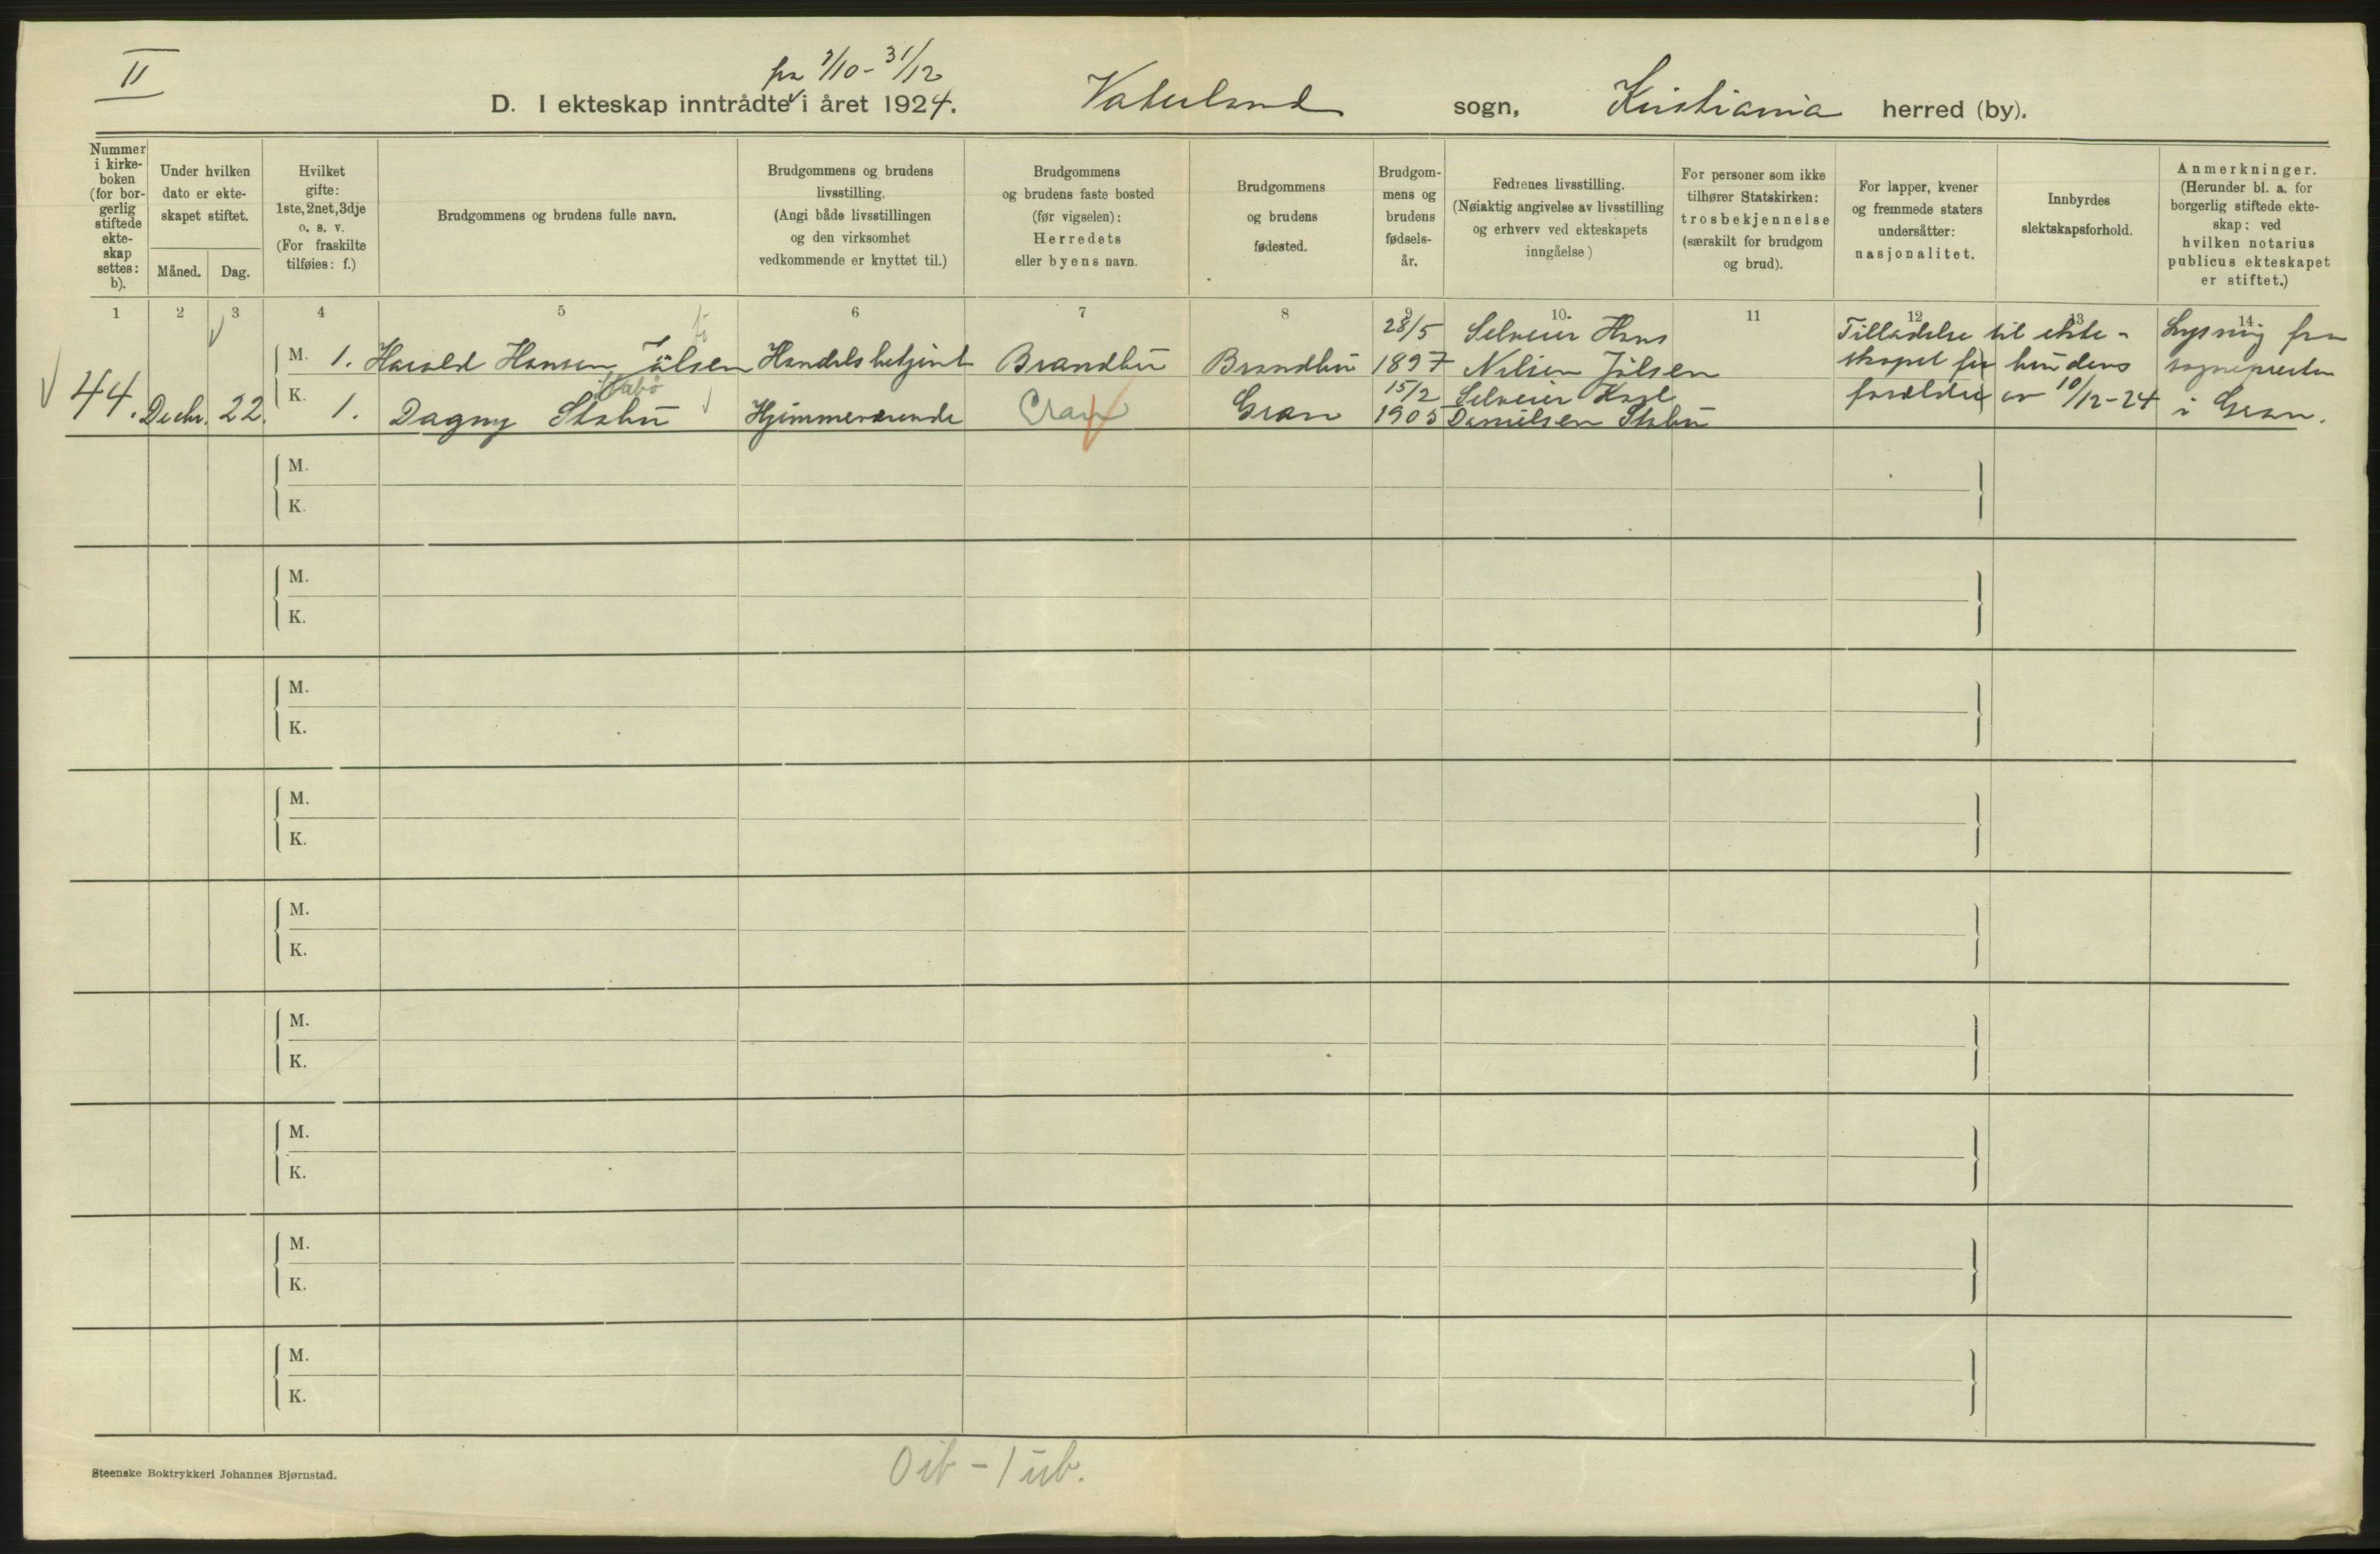 II
fra 1/10 - 31/12
D. I ekteskap inntrådte i året 1924. Vaterland sogn, Kristiania herred (by).
Nummer
i kirke-
boken
(for bor-
gerlig
stiftede
ekte-
skap
settes:
b).
Under hvilken
dato er ekte-
skapet stiftet.
Måned. Dag.
Hvilket
gifte:
1ste, 2net, 3dje
o. s. v.
(For fraskilte
tilføies: f.)
Brudgommens og brudens fulle navn.
Brudgommens og brudens
livsstilling.
(Angi både livsstillingen
og den virksomhet
vedkommende er knyttet til.)
Brudgommens
og brudens faste bosted
(før vigselen):
Herredets
eller byens navn.
Brudgommens
og brudens
fødested.
Brudgom-
mens og
brudens
fødsels-
år.
Fedrenes livsstilling.
(Nøiaktig angivelse av livsstilling
og erhverv ved ekteskapets
inngåelse)
For personer som ikke
tilhører Statskirken:
trosbekjennelse
(særskilt for brudgom
og brud).
For lapper, kvener
og fremmede staters
undersåtter:
nasjonalitet.
Innbyrdes
slektskapsforhold.
Anmerkninger.
(Herunder bl. a. for
borgerlig stiftede ekte-
skap: ved
hvilken notarius
publicus ekteskapet
er stiftet.)
1 2 3 4 5 6 7 8 9 10. 11 12 13 14
44. Decbr. 22.
M. 1. Harald Hansen Jålsen Handelsbetjent Brandbu Brandbu 28/5 1897 Selveier Hans
Nilsen Jålsen
Stabo
K. 1. Dagny Stabu Hjemmeværende Gran Gran 15/2 1905 Selveier Karl
Danielsen Stabu
Tilladelse til ekte-
skapet fra brudens
forældre av 10/12-24
Lysning fra
sognepresten
i Gran.
M.
K.
M.
K.
M.
K.
M.
K.
M.
K.
M.
K.
M.
K.
M.
K.
M.
K.
Steenske Boktrykkeri Johannes Bjørnstad.
0 ib - 1 ub.